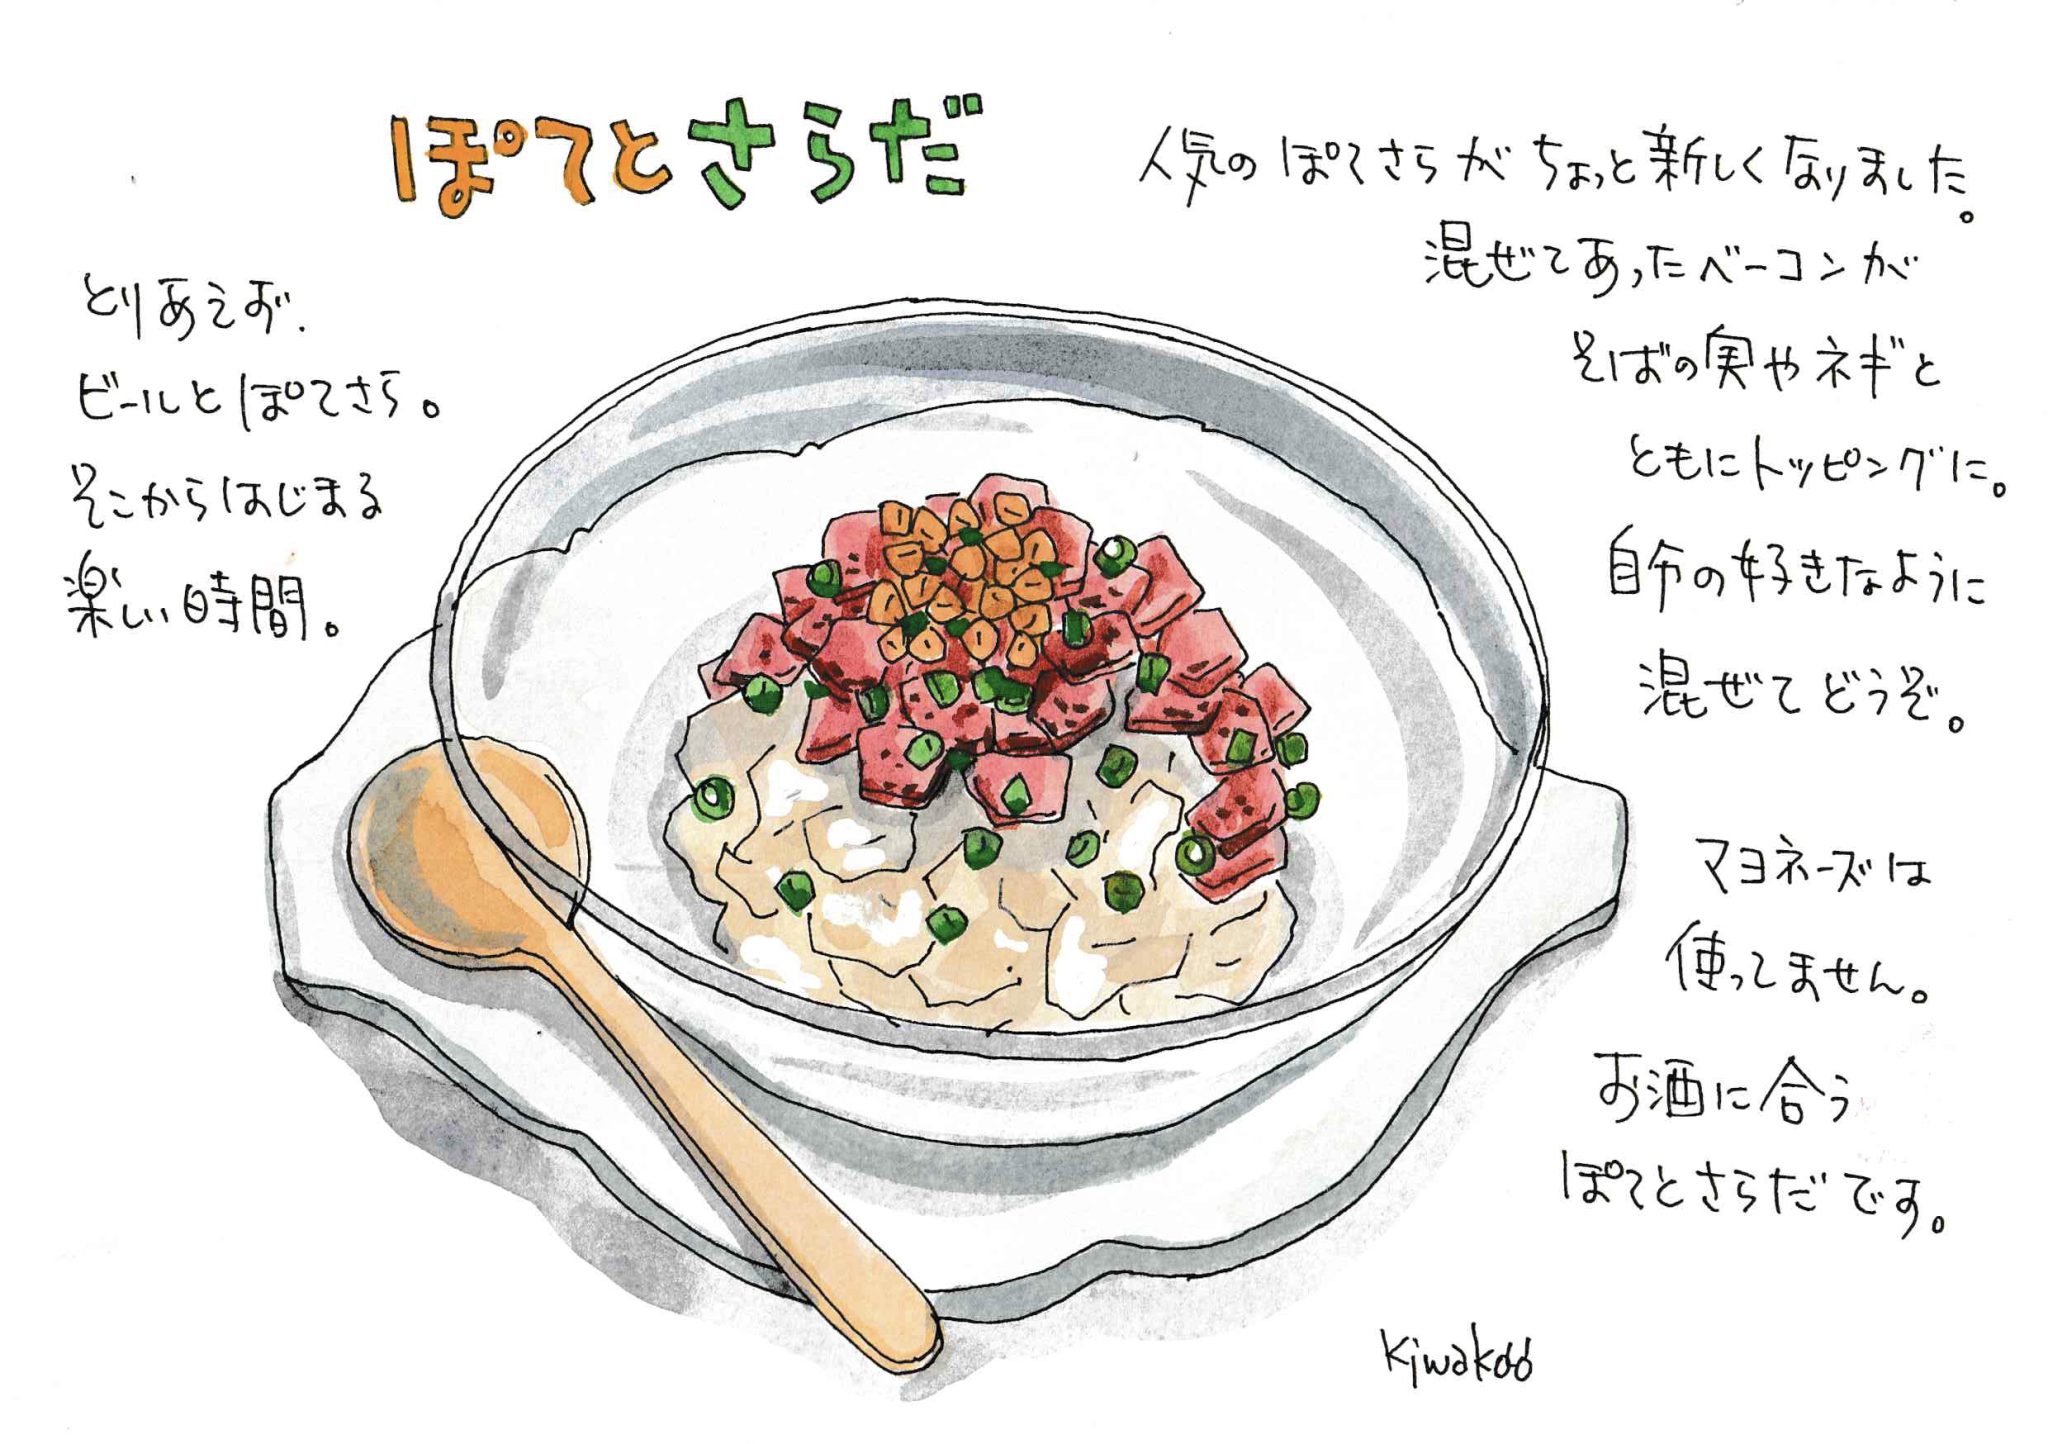 ぽてとさらだ
とりあえず、
ビールとぽてさら。
そこからはじまる
楽しい時間。
人気のぽてさらがちょっと新しくなりました。
混ぜてあったベーコンが
そばの実やネギと
ともにトッピングに。
自分の好きなように
混ぜてどうぞ。
マヨネーズは
使ってません。
お酒に合う
ぽてとさらだです。
Kiwakoo